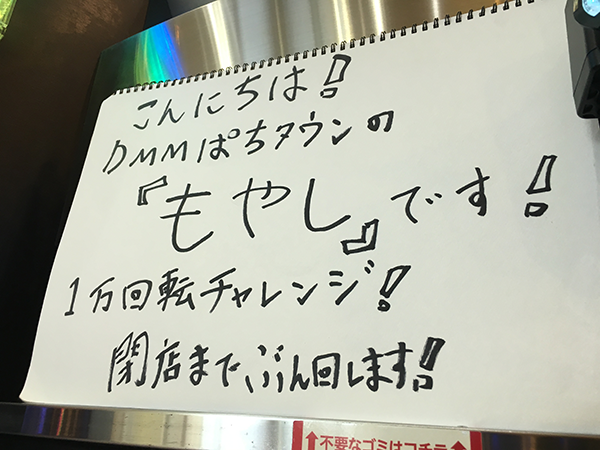 こんにちは!
DMMぱちタウンの
『もやし』です!
1万回転チャレンジ!
閉店まで、ぶん回します!!
↑不要なゴミはコチラ↑